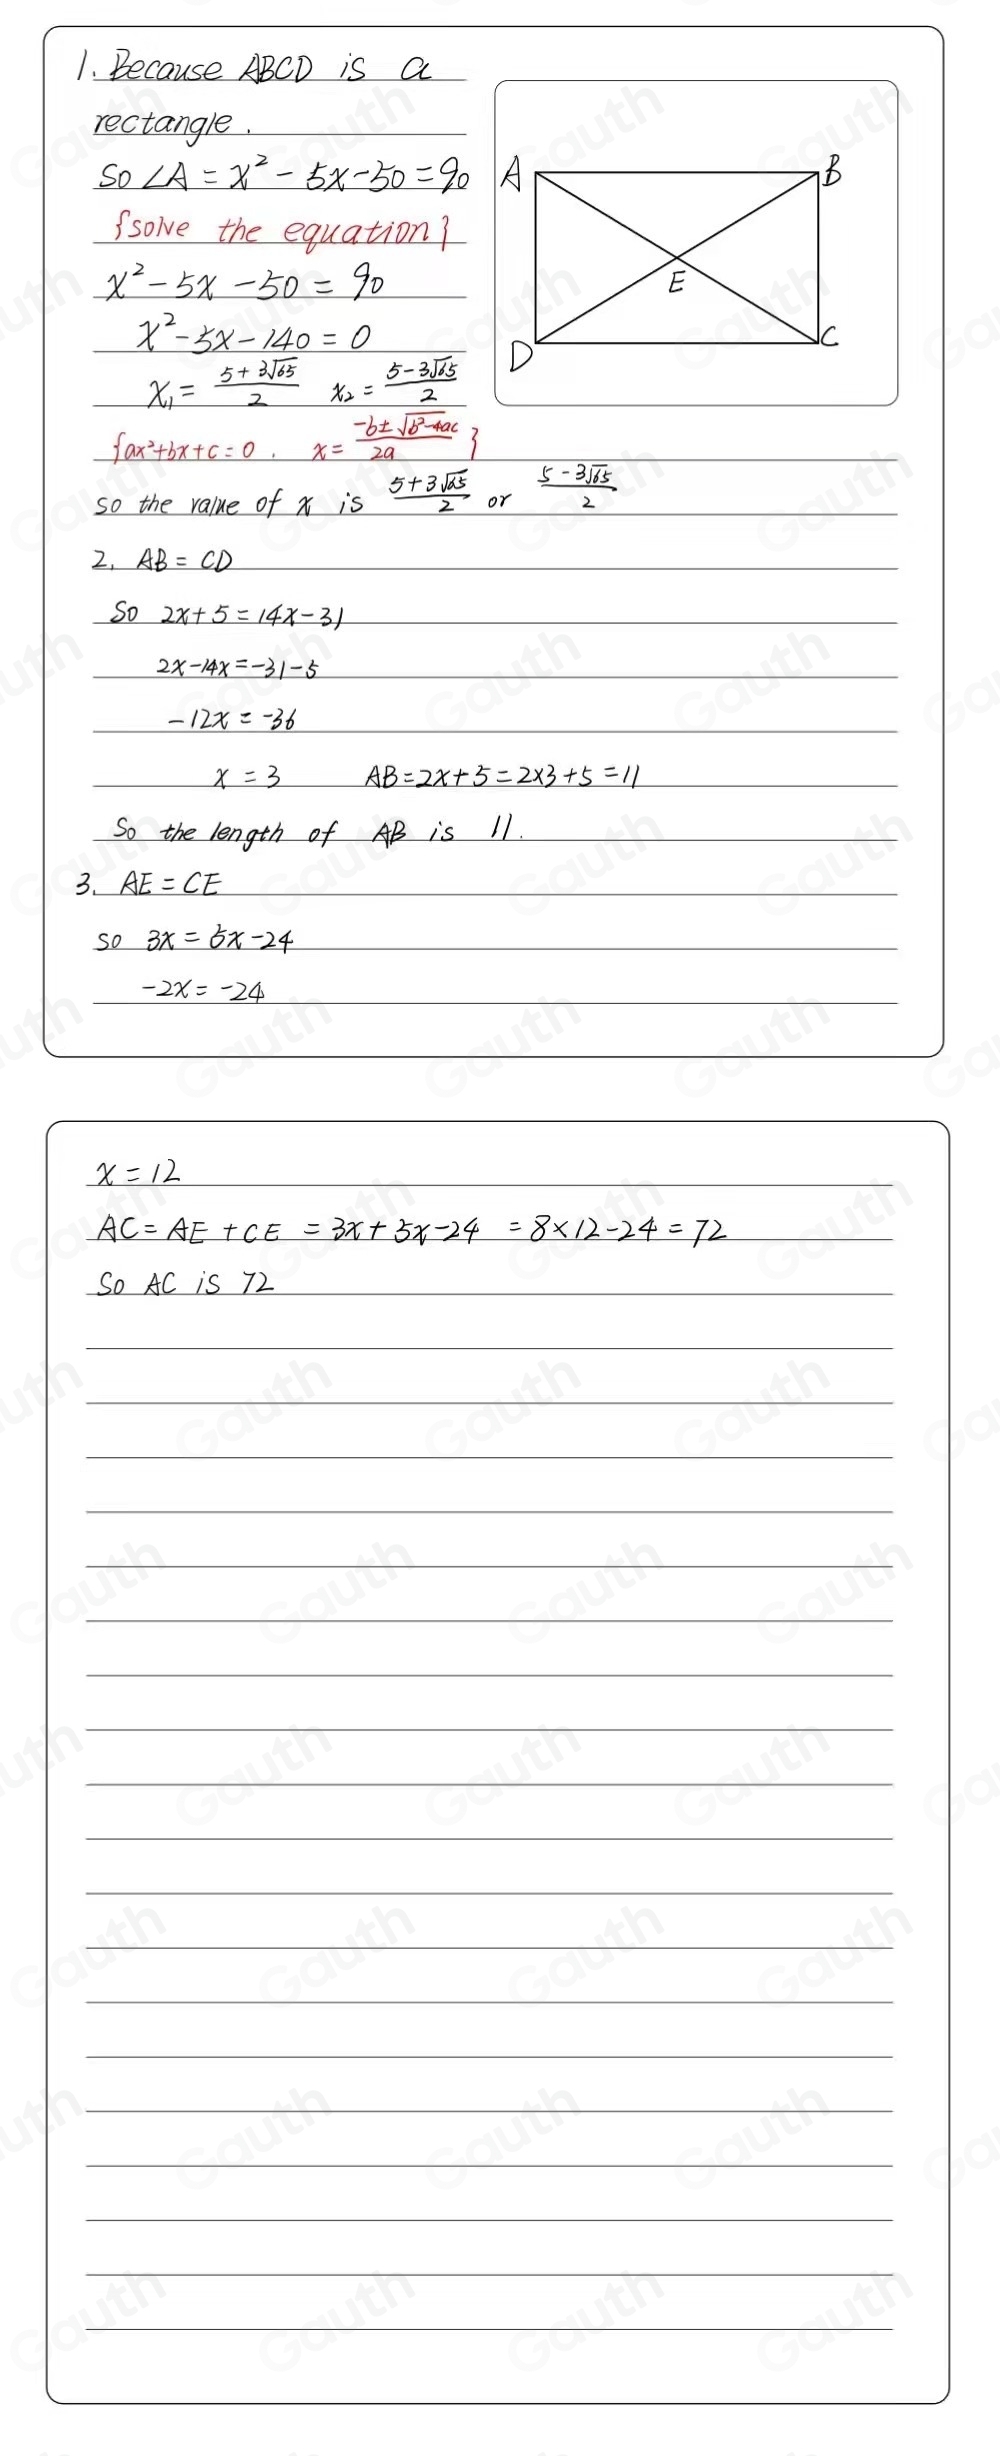 1. Because ABCD is a
rectangle.
So ∠A = x² - 5x - 50 = 90
{solve the equation}
x² - 5x - 50 = 90
x² - 5x - 140 = 0
x₁ = (5+3√65)/2 x₂ = (5-3√65)/2
{ax²+bx+c=0. x = (-b±√(b²-4ac))/2a}
so the value of x is (5+3√65)/2 or (5-3√65)/2
A
B
E
D
C
2. AB = CD
So 2x+5 = 14x-31
2x-14x = -31-5
-12x = -36
x = 3 AB = 2x+5 = 2×3+5 = 11
So the length of AB is 11.
3. AE = CE
so 3x = 5x-24
-2x = -24
x = 12
AC = AE + CE = 3x+5x-24 = 8×12-24 = 72
So AC is 72
Gauth